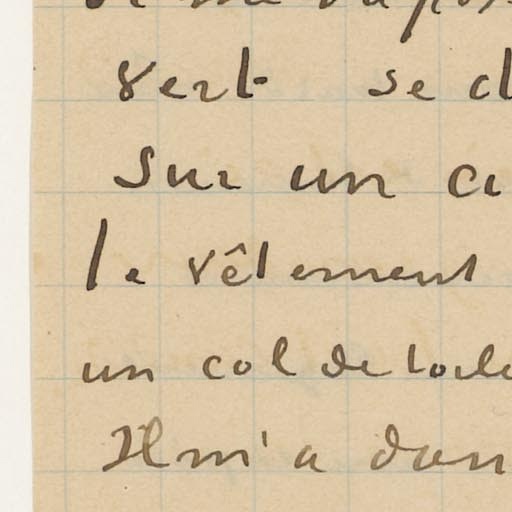 vert se d
Sur un ci
le vêtement
un col de toile
Il m'a don